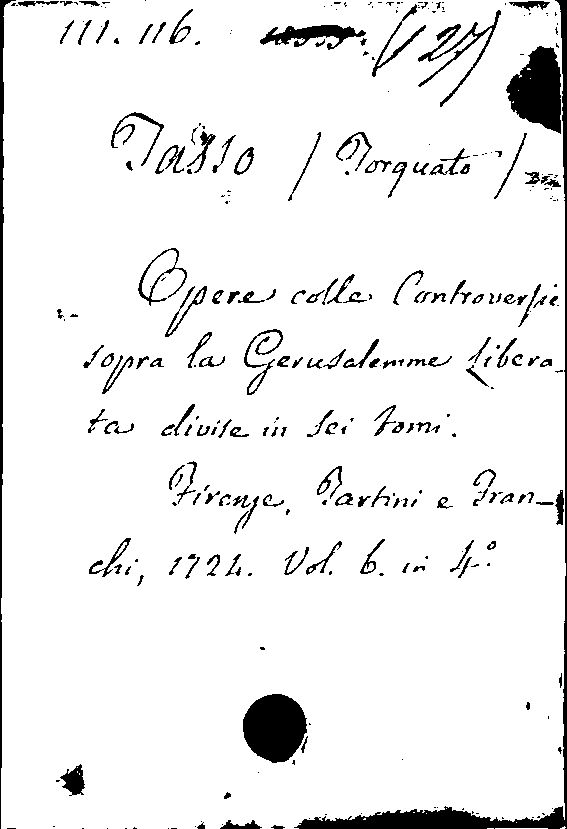 111. 116. (127)
Tasso / Torquato /
Opere colle Controversie
sopra la Gerusalemme Libera-
ta divise in sei tomi.
Firenze, Tartini e Fran-
chi, 1724. Vol. 6. in 4.°